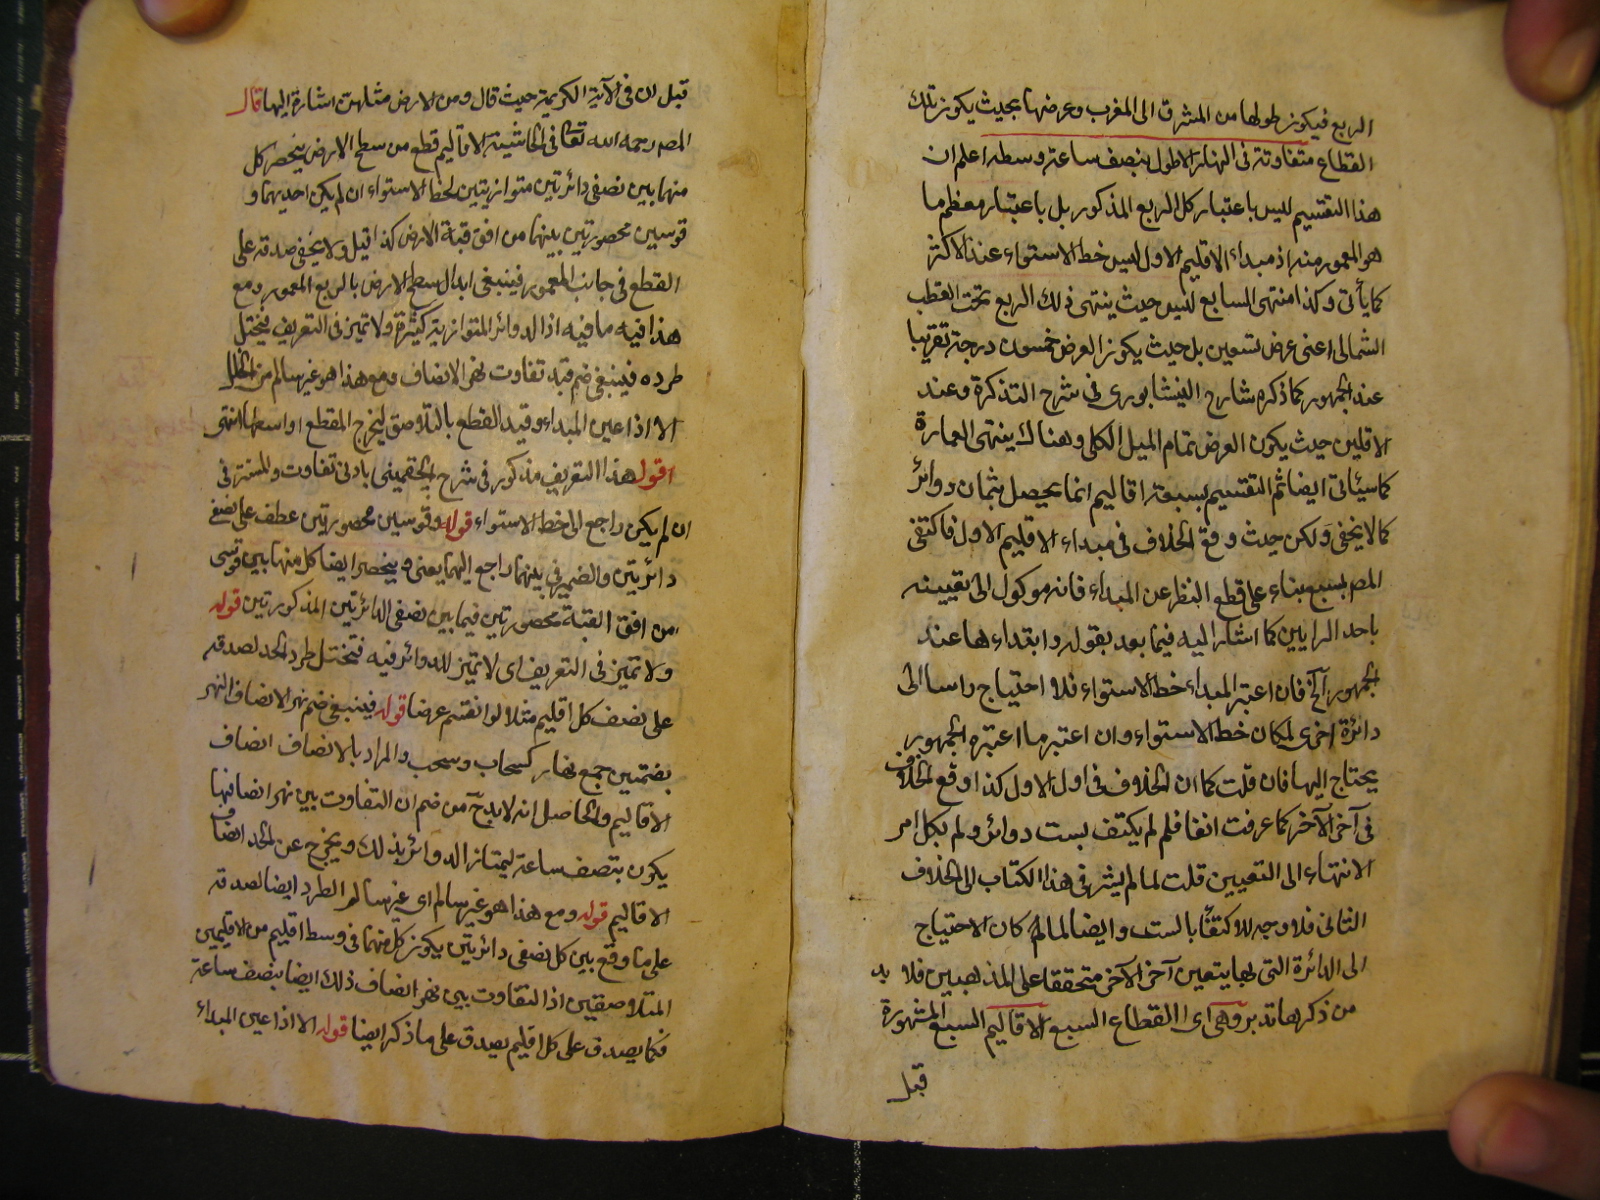 الربع فيكون طولها من المشرق الى المغرب وعرضها بحيث يكون تلك
القطاع متفاوتة فى النهار الاطول بنصف ساعة وسطه اعلم ان
هذا التقسيم ليس باعتبار كل الربع المذكور بل باعتبار معظم ما
هو المعمور منه اذ مبداء الاقليم الاول ليس خط الاستواء عند الاكثر
كما يأتى وكذا منتهى السابع ليس حيث ينتهى ذلك الربع تحت القطب
الشمالى اعنى عرض تسعين بل حيث يكون العرض خمسون درجة تقريبا
عند الجمهور كما ذكره شارح النيشابورى فى شرح التذكرة وعند
الاقلين حيث يكون العرض تمام الميل الكلى وهناك ينتهى العمارة
كما سيأتى ايضا ثم التقسيم بسبعة اقاليم انما يحصل بثمان دوائر
كما لا يخفى ولكن حيث وقع الخلاف فى مبداء الاقليم الاول فاكتفى
المص بسبع بناء على قطع النظر عن المبداء فانه موكول الى تعيينه
باحد الرايين كما اشار اليه فيما بعد بقوله وابتداءها عند
الجمهور آلخ فان اعتبر المبداء خط الاستواء فلا احتياج راسا الى
دائرة اخرى لمكان خط الاستواء وان اعتبر ما اعتبره الجمهور
يحتاج اليها فان قلت كما ان الخلاف فى اول الاول كذا وقع الخلاف
فى آخر الآخر كما عرفت انفا فلم لم يكتف بست دوائر ولم يكل امر
الانتهاء الى التعيين قلت لما لم يشر فى هذا الكتاب الى الخلاف
الثانى فلا وجه للاكتفأ بالست وايضا لما كان الاحتياج
الى الدائرة التى بها يتعين آخر الآخر متحققا على المذهبين فلا بد
من ذكرها تدبر وهى اى القطاع السبع الاقاليم السبع المشهورة
قيل
قيل ان فى الآية الكريمة حيث قال ومن الارض مثلهن اشارة اليها قال
المص رحمه الله تعالى فى الحاشية الاقاليم قطع من سطح الارض ينحصر كل
منها بين نصفى دائرتين متوازيتين لخط الاستواء ان لم يكن احديهما و
قوسين محصورتين بينهما من افق قبة الارض كذا قيل ولا يخفى صدقه على
القطع فى جانب المعمور فينبغى ابدال سطح الارض بالربع المعمور ومع
هذا فيه ما فيه اذ الدوائر المتوازية كثيرة ولا تميز فى التعريف فيختل
طرده فينبغى ضم قيد تفاوت نهر الانصاف ومع هذا هو غير سالم من الخلل
الا اذا عين المبداء وقيد القطع بالتلاصق ليخرج المقطع اواسطها انتهى
اقول هذا التعريف مذكور فى شرح الجغمينى بادنى تفاوت والمستتر فى
ان لم يكن راجع الى خط الاستواء قوله وقوسين محصورتين عطف على نصفى
دائرتين والضمير فى بينهما راجع اليهما يعنى وينحصر ايضا كل منها بين قوسى
من افق القبة محصورتين فيما بين نصفى الدائرتين المذكورتين قوله
ولا تميز فى التعريف اى لا تميز للدوائر فيه فيختل طرد الحد لصدقه
على نصف كل اقليم مثلا لو انقسم عرضا قوله فينبغى ضم نهر الانصاف النهر
بضمتين جمع نهار كسحاب وسحب والمراد بالانصاف انصاف
الاقاليم والحاصل انه لا بد ح من ضم ان التفاوت بين نهر انصافها
يكون بنصف ساعة ليمتاز الدوائر بذلك ويخرج عن الحد انصاف
الاقاليم قوله ومع هذا هو غير سالم اى غير سالم الطرد ايضا لصدقه
على ما وقع بين كل نصفى دائرتين يكون كل منهما فى وسط اقليم من الاقليمين
المتلاصقين اذ التفاوت بين نهر انصاف ذلك ايضا بنصف ساعة
فكما يصدق على كل اقليم يصدق على ما ذكر ايضا قوله الا اذا عين المبداء